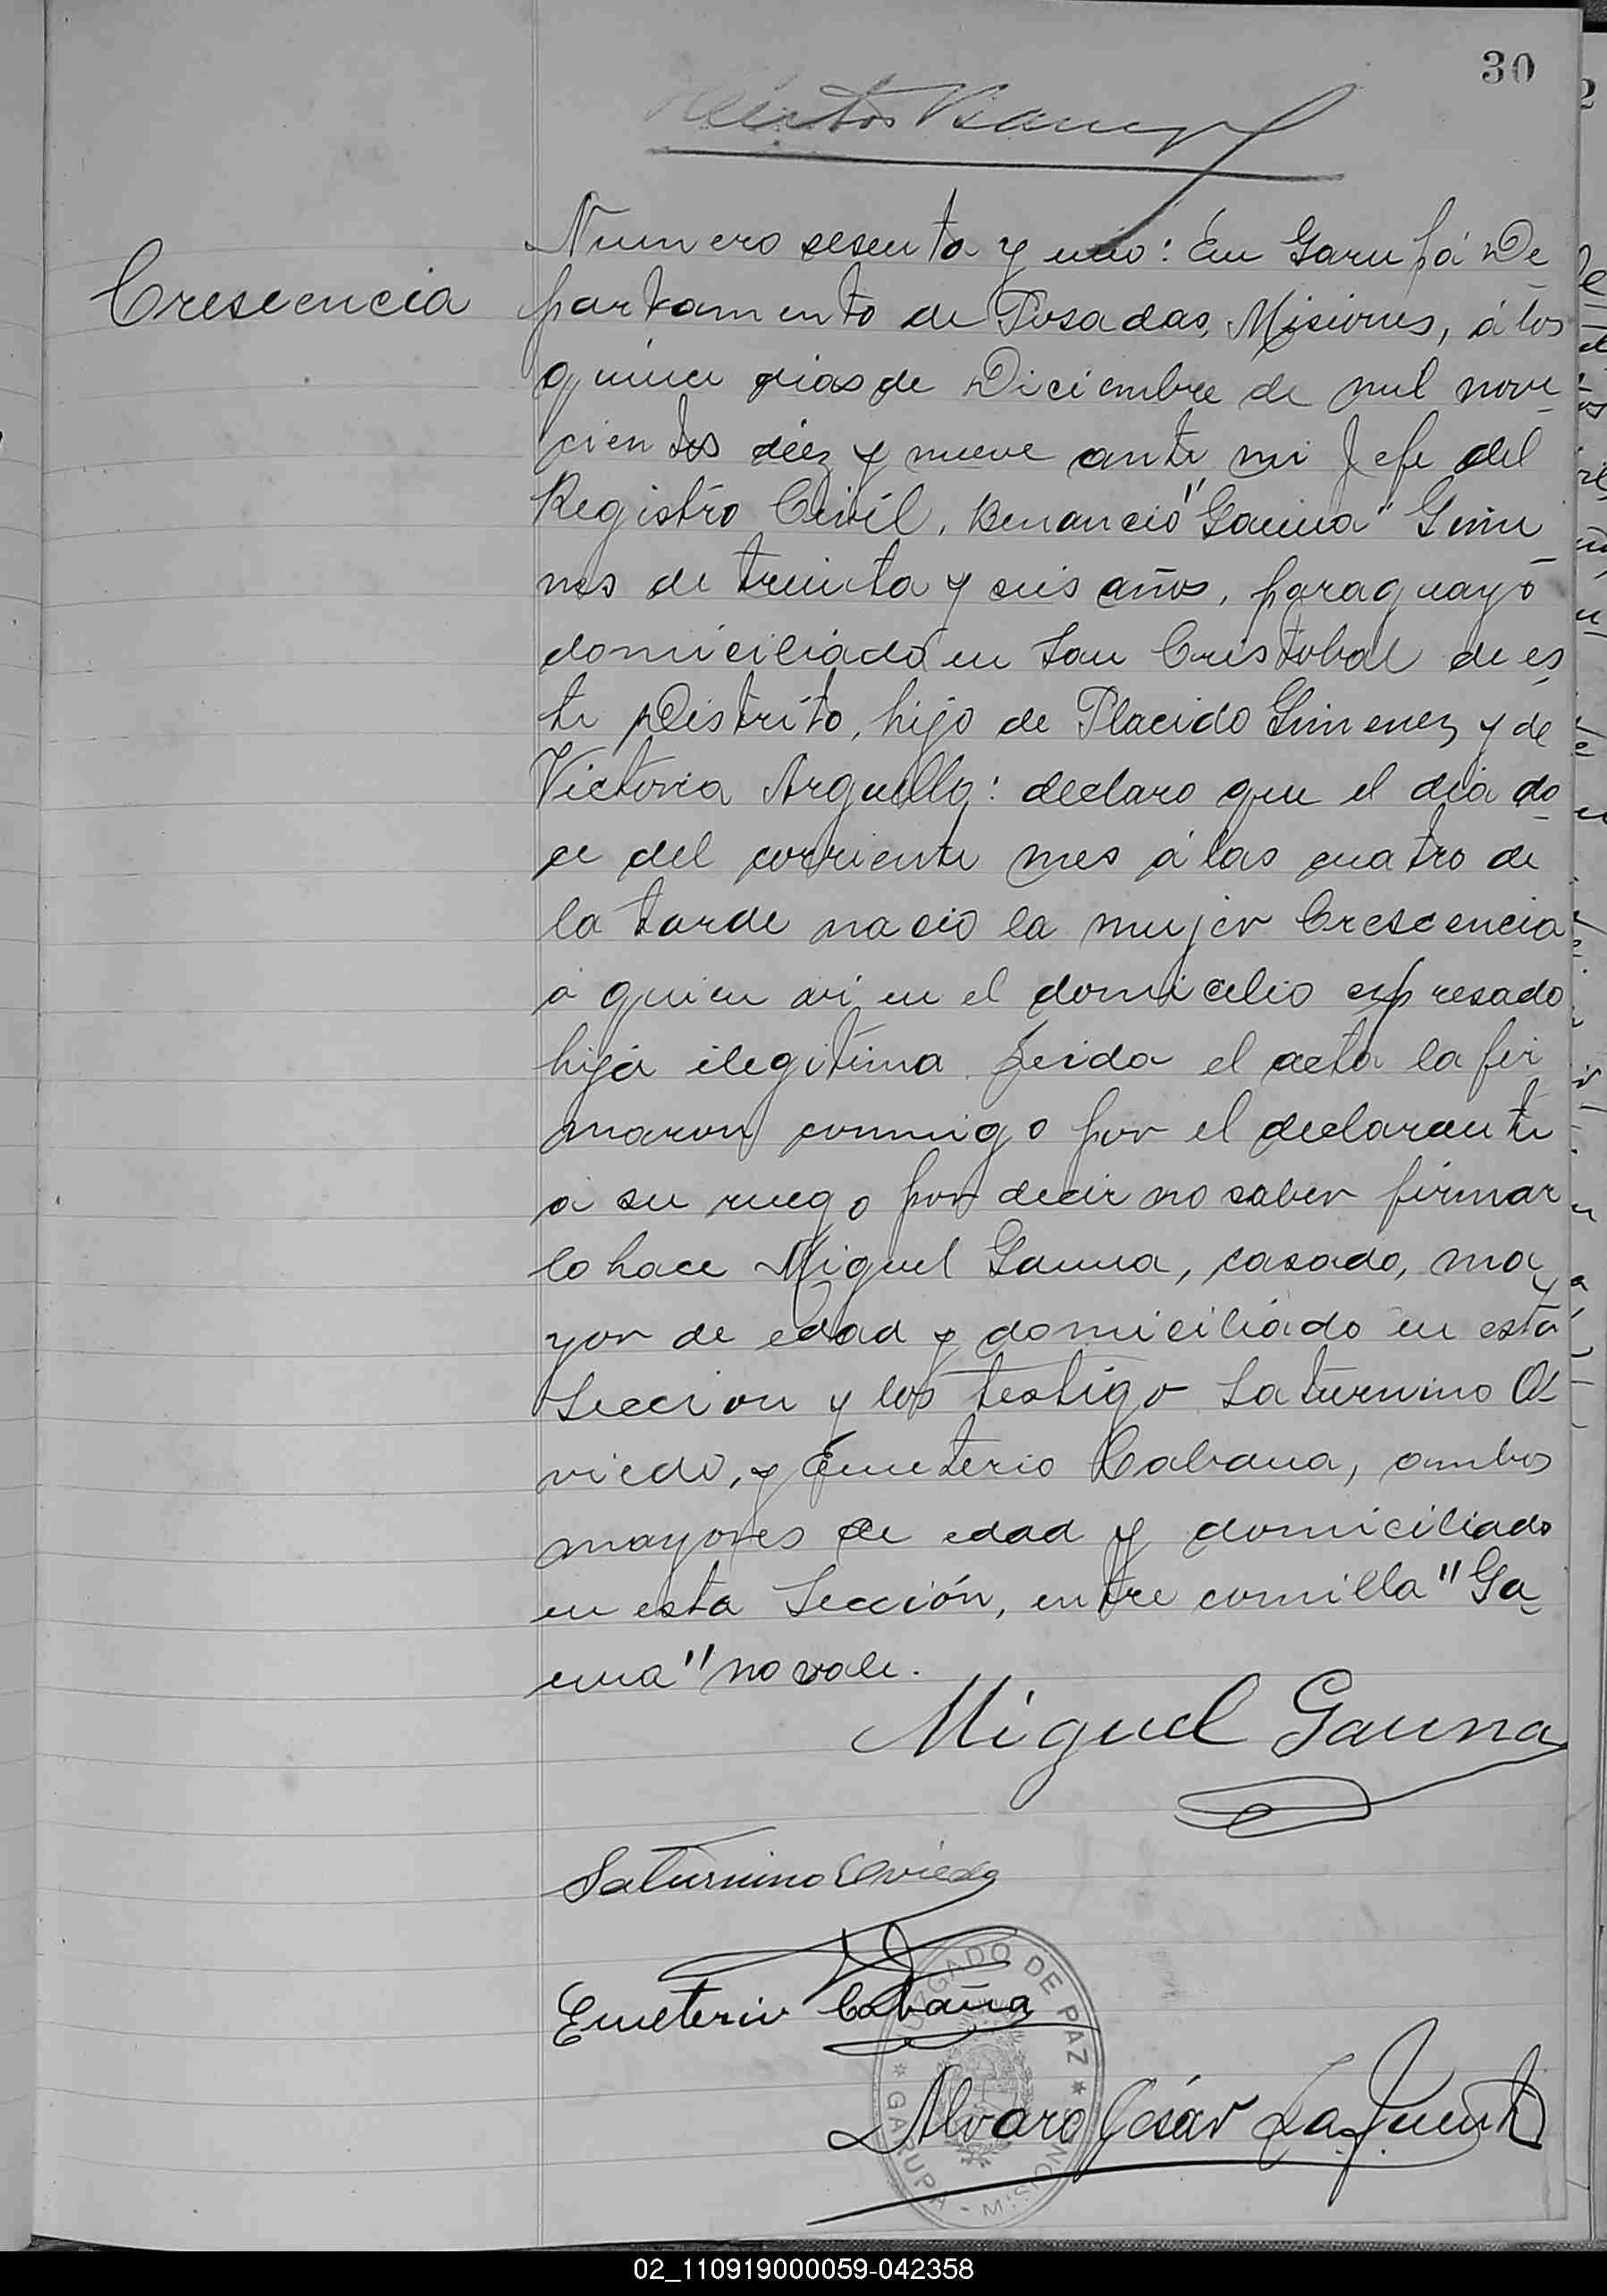 30
Numero sesenta y uno: En Garupá De
Crescencia
partamento de Posadas, Misiones, á los
quince dias de Diciembre de mil nove
cientos diez y nueve ante mi Jefe del
Registro Civil, Benancio "Gauna" Gime
nes de treinta y seis años, paraguayo
domiciliado en San Cristobal de es
te Distrito, hijo de Placido Gimenez y de
Victoria Arguello: declaro que el dia do
ce del corriente mes á las cuatro de
la tarde nacio la mujer Crescencia
a quien vi en el domicilio expresado
hija ilegitima. Leida el acta la fir
maron conmigo por el declarante
a su ruego por decir no saber firmar
lo hace Miguel Gauna, casado, ma
yor de edad y domiciliado en esta
Seccion y los testigo Saturnino O
viedo, y Emeterio Cabana, ambos
mayores de edad y domiciliado
en esta Sección, entre comilla "Ga
una" no vale.
Miguel Gauna
Saturnino Oviedo
Emeterio Cabaña
JUZGADO DE PAZ * GARUPA - MISIONES *
Alvaro César Lafuente
02_110919000059-042358